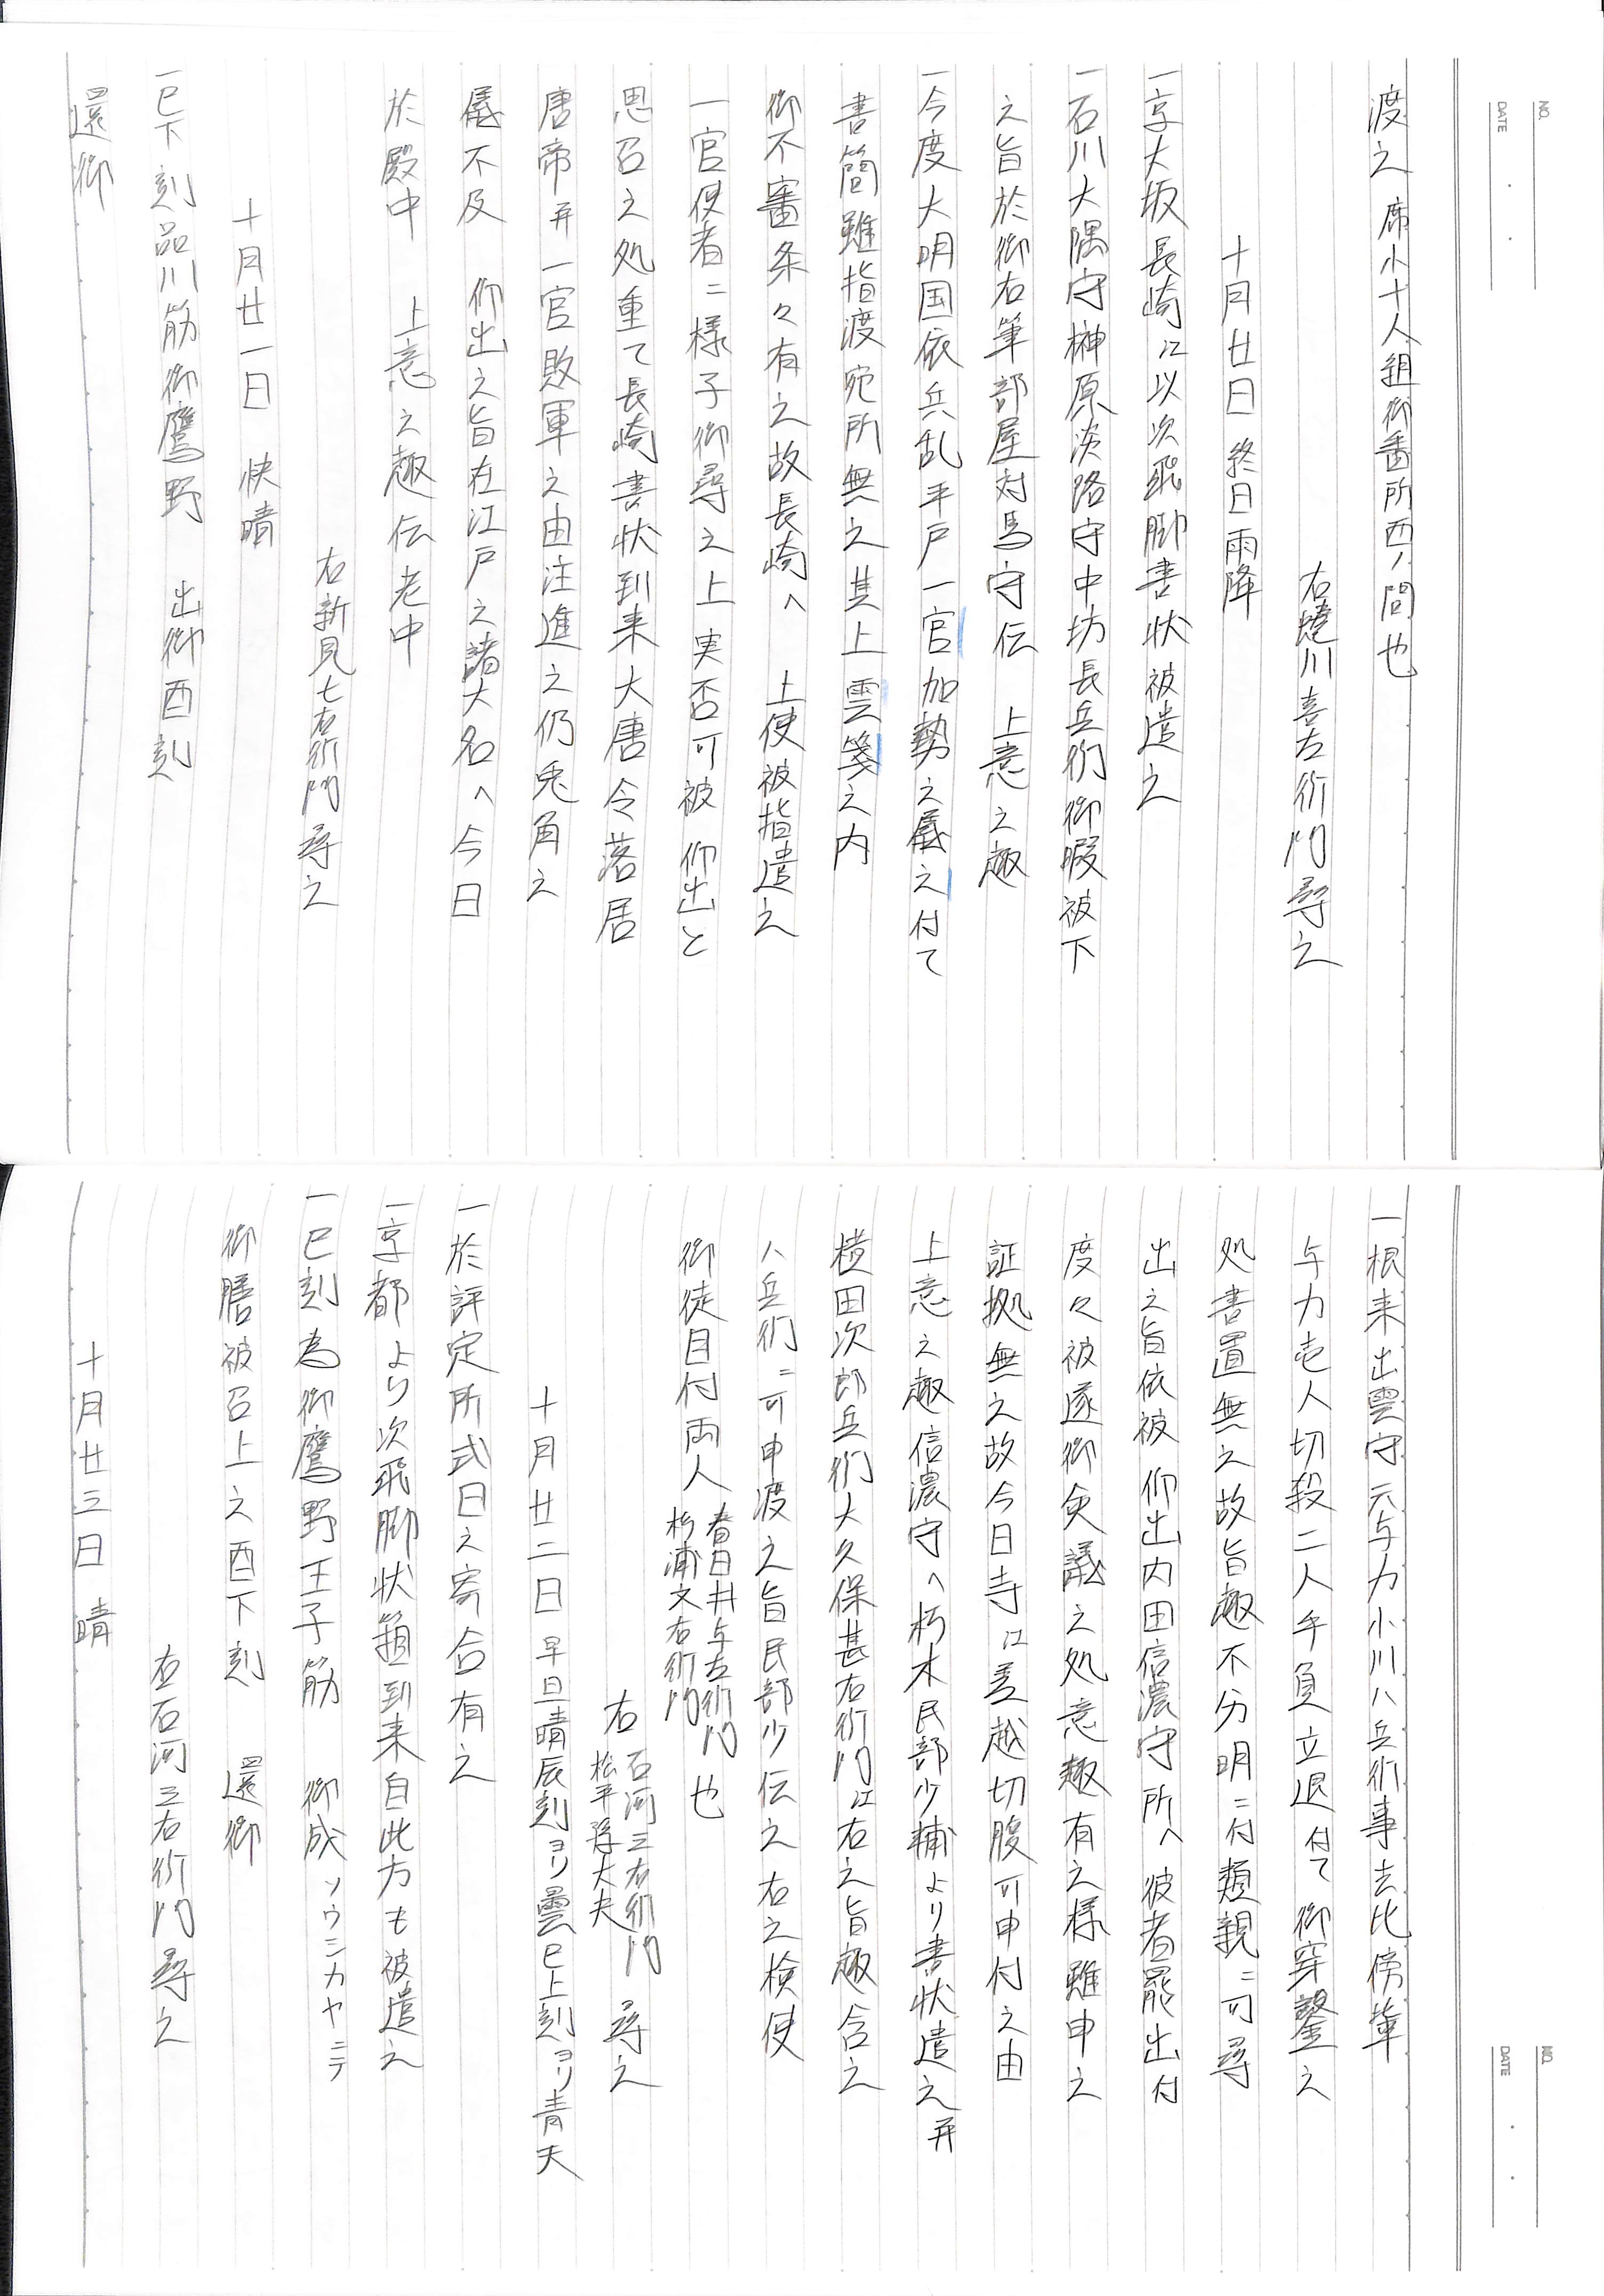 渡之席小十人組御番所西ノ間也
右蜷川喜左衛門尋之
十月廿日 終日雨降
一京大坂長崎江以次飛脚書状被遣之
一石川大隅守榊原淡路守中坊長兵衛御暇被下
之旨於御右筆部屋対馬守伝 上意之趣
一今度大明国依兵乱平戸一官加勢之儀之付て
書簡雖指渡宛所無之其上雲箋之内
御不審条々有之故長崎へ 上使被指遣之
一官使者ニ様子御尋之上実否可被 仰出と
思召之処重て長崎書状到来大唐令落居
唐帝并一官敗軍之由注進之仍兎角之
儀不及 仰出之旨在江戸之諸大名へ今日
於殿中 上意之趣伝老中
右新見七右衛門尋之
十月廿一日 快晴
一巳下刻品川筋御鷹野 出御酉刻
還御
一根来出雲守元与力小川八兵衛事去比傍輩
与力壱人切殺二人手負立退付て御穿鑿之
処書置無之故旨趣不分明ニ付類親ニ可尋
出之旨依被 仰出内田信濃守所へ彼者罷出付
度々被遂御僉議之処意趣有之様雖申之
証拠無之故今日寺江差越切腹可申付之由
上意之趣信濃守へ朽木民部少輔より書状遣之并
横田次郎兵衛大久保甚右衛門江右之旨趣含之
八兵衛ニ可申渡之旨民部少伝之右之検使
御徒目付両人 春日井与左衛門 杉浦文右衛門 也
右 石河三右衛門 松平隼大夫 尋之
十月廿二日 早旦晴辰刻ヨリ曇巳上刻ヨリ青天
一於評定所式日之寄合有之
一京都より次飛脚状箱到来自此方も被遣之
一巳刻為御鷹野王子筋 御成 ソウニカヤニテ
御膳被召上之酉下刻 還御
右石河三右衛門尋之
十月廿三日 晴
NO.
DATE
NO.
DATE